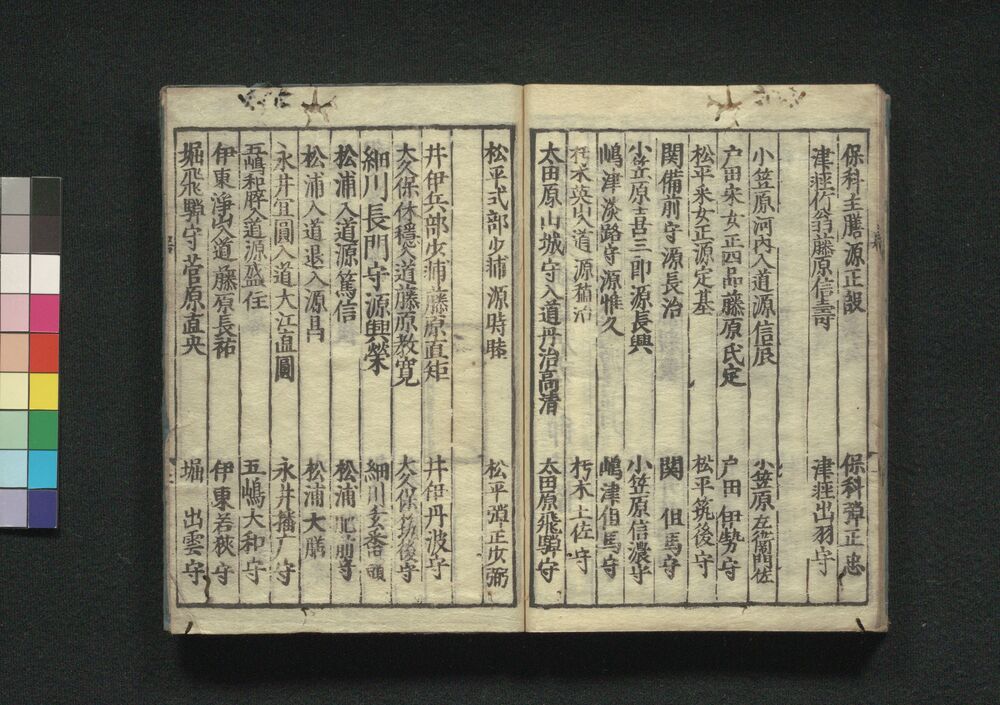 保科主膳源正設 保科弾正忠
津軽竹翁藤原信壽 津軽出羽守
小笠原河内入道源信辰 小笠原左衛門佐
戸田采女正四品藤原氏定 戸田伊勢守
松平采女正源定基 松平筑後守
関備前守源長治 関但馬守
小笠原喜三郎源長興 小笠原信濃守
嶋津淡路守源惟久 嶋津伯馬守
朽木 入道源 朽木土佐守
太田原山城守入道丹治高清 太田原飛騨守
松平式部少輔源時睦 松平弾正少弼
井伊兵部少輔藤原直矩 井伊丹波守
大久保休穏入道藤原教寛 大久保筑後守
細川長門守源興榮 細川玄蕃頭
松浦入道源篤信 松浦肥前守
松浦入道退入源昌 松浦大膳
永井宜圓入道大江直圓 永井播广守
五嶋和 入道源盛住 五嶋大和守
伊東浄山入道藤原長祐 伊東若狭守
堀飛騨守菅原直央 堀出雲守